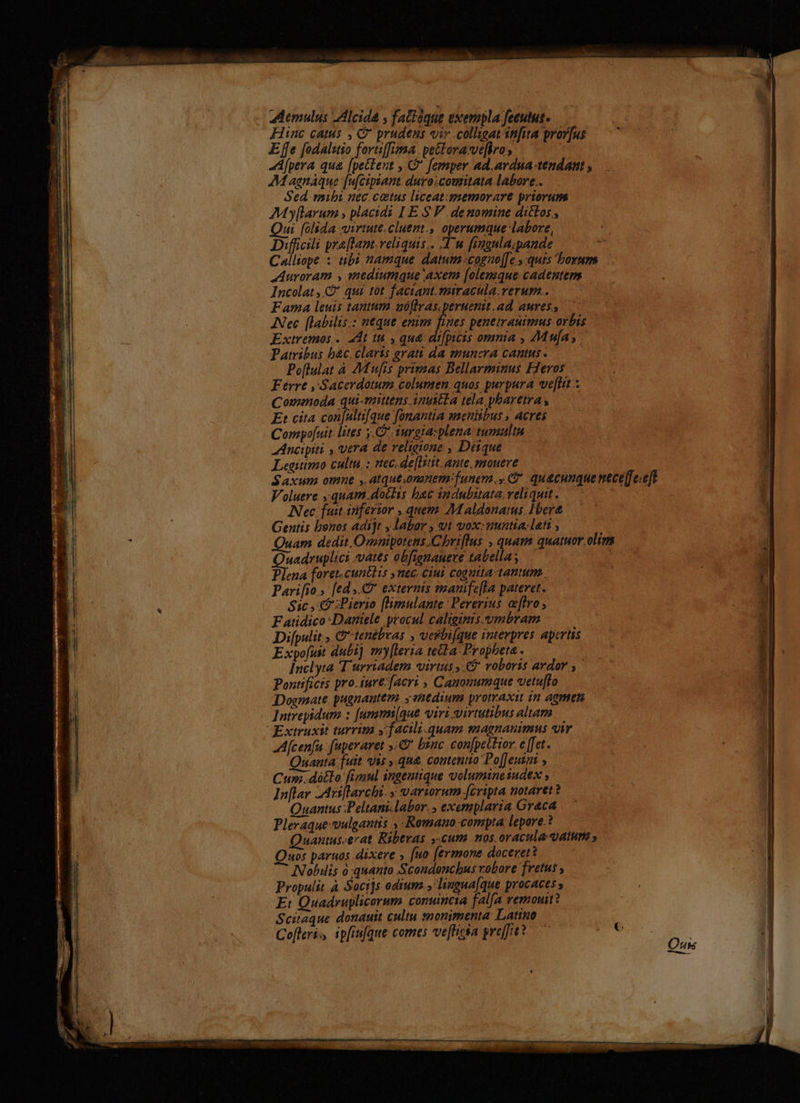 Aemulus Alcidæ, factóque exempla secutus.
Hinc catus, & prudens vir colligat insita prorsus
Esse sodalitio fortissima pectora vestro,
Aspera quæ spectent, & semper ad ardua tendant,
Magnáque suscipiant duro comitata labore.
Sed mihi nec cœtus liceat memorare priorum
Mystarum, placidi IESV de nomine dictos,
Qui solida virtute cluent, operumque labore,
Difficili præstant reliquis. Tu singula, pande
Calliope: tibi namque datum cognosse, quis horum
Auroram, mediumque axem solemque cadentem
Incolat, & qui tot faciant miracula rerum.
Fama leuis tantum nostras peruenit ad aures,
Nec stabilis: neque enim fines penetrauimus orbis
Extremos. At tu, quæ dispicis omnia, Musa,
Patribus hæc claris grati da munera cantus.
Postulat à Musis primas Bellarminus Heros
Ferre, Sacerdotum columen quos purpura vestit:
Commoda qui mittens inuicta tela pharetra,
Et cita consultisque sonantia mentibus, acres
Composuit lites, & iurgia plena tumultu
Ancipiti, vera de religione, Deique
Legitimo cultu: nec destitit ante, mouere
Saxum omne, atque omnem funem, & quæcunque necesse est
Voluere, quam doctis hæc indubitata reliquit.
Nec fuit inferior, quem Maldonatus Iberæ
Gentis honos adijt, labor, vt vox nuntia læti,
Quam dedit Omnipotens Christus, quam quatuor olim
Quadruplici vates obsignauere tabella,
Plena foret cunctis, nec ciui cognita tantum
Parisio, sed, & externis manifesta pateret.
Sic, & Pierio stimulante Pererius œstro,
Fatidico Daniele procul caliginis vmbram
Dispulit, & tenebras, verbisque interpres apertis
Exposuit dubij mysteria tecta Prophetæ.
Inclyta Turriadem virtus, & roboris ardor,
Pontificis pro iure sacri, Canonumque vetusto
Dogmate pugnantem, medium protraxit in agmen
Intrepidum: summisque viri virtutibus altam
Extruxit turrim, facili quam magnanimus vir
Ascensu superaret, & hinc conspectior esset.
Quanta fuit vis, quæ contentio Posseuini,
Cum docto simul ingentique volumine iudex,
Instar Aristarchi, variorum scripta notaret?
Quantus Peltani labor, exemplaria Græca
Pleraque vulgantis, Romano compta lepore?
Quantus erat Riberas, cum nos oracula vatum,
Quos paruos dixere, suo sermone doceret?
Nobilis ò quanto Scondonchus robore fretus,
Propulit à Socijs odium, linguasque procaces,
Et Quadruplicorum conuincia falsa remouit?
Scitaque donauit cultu monimenta Latino
Costerio, ipsiusque comes vestigia pressit?
Quis